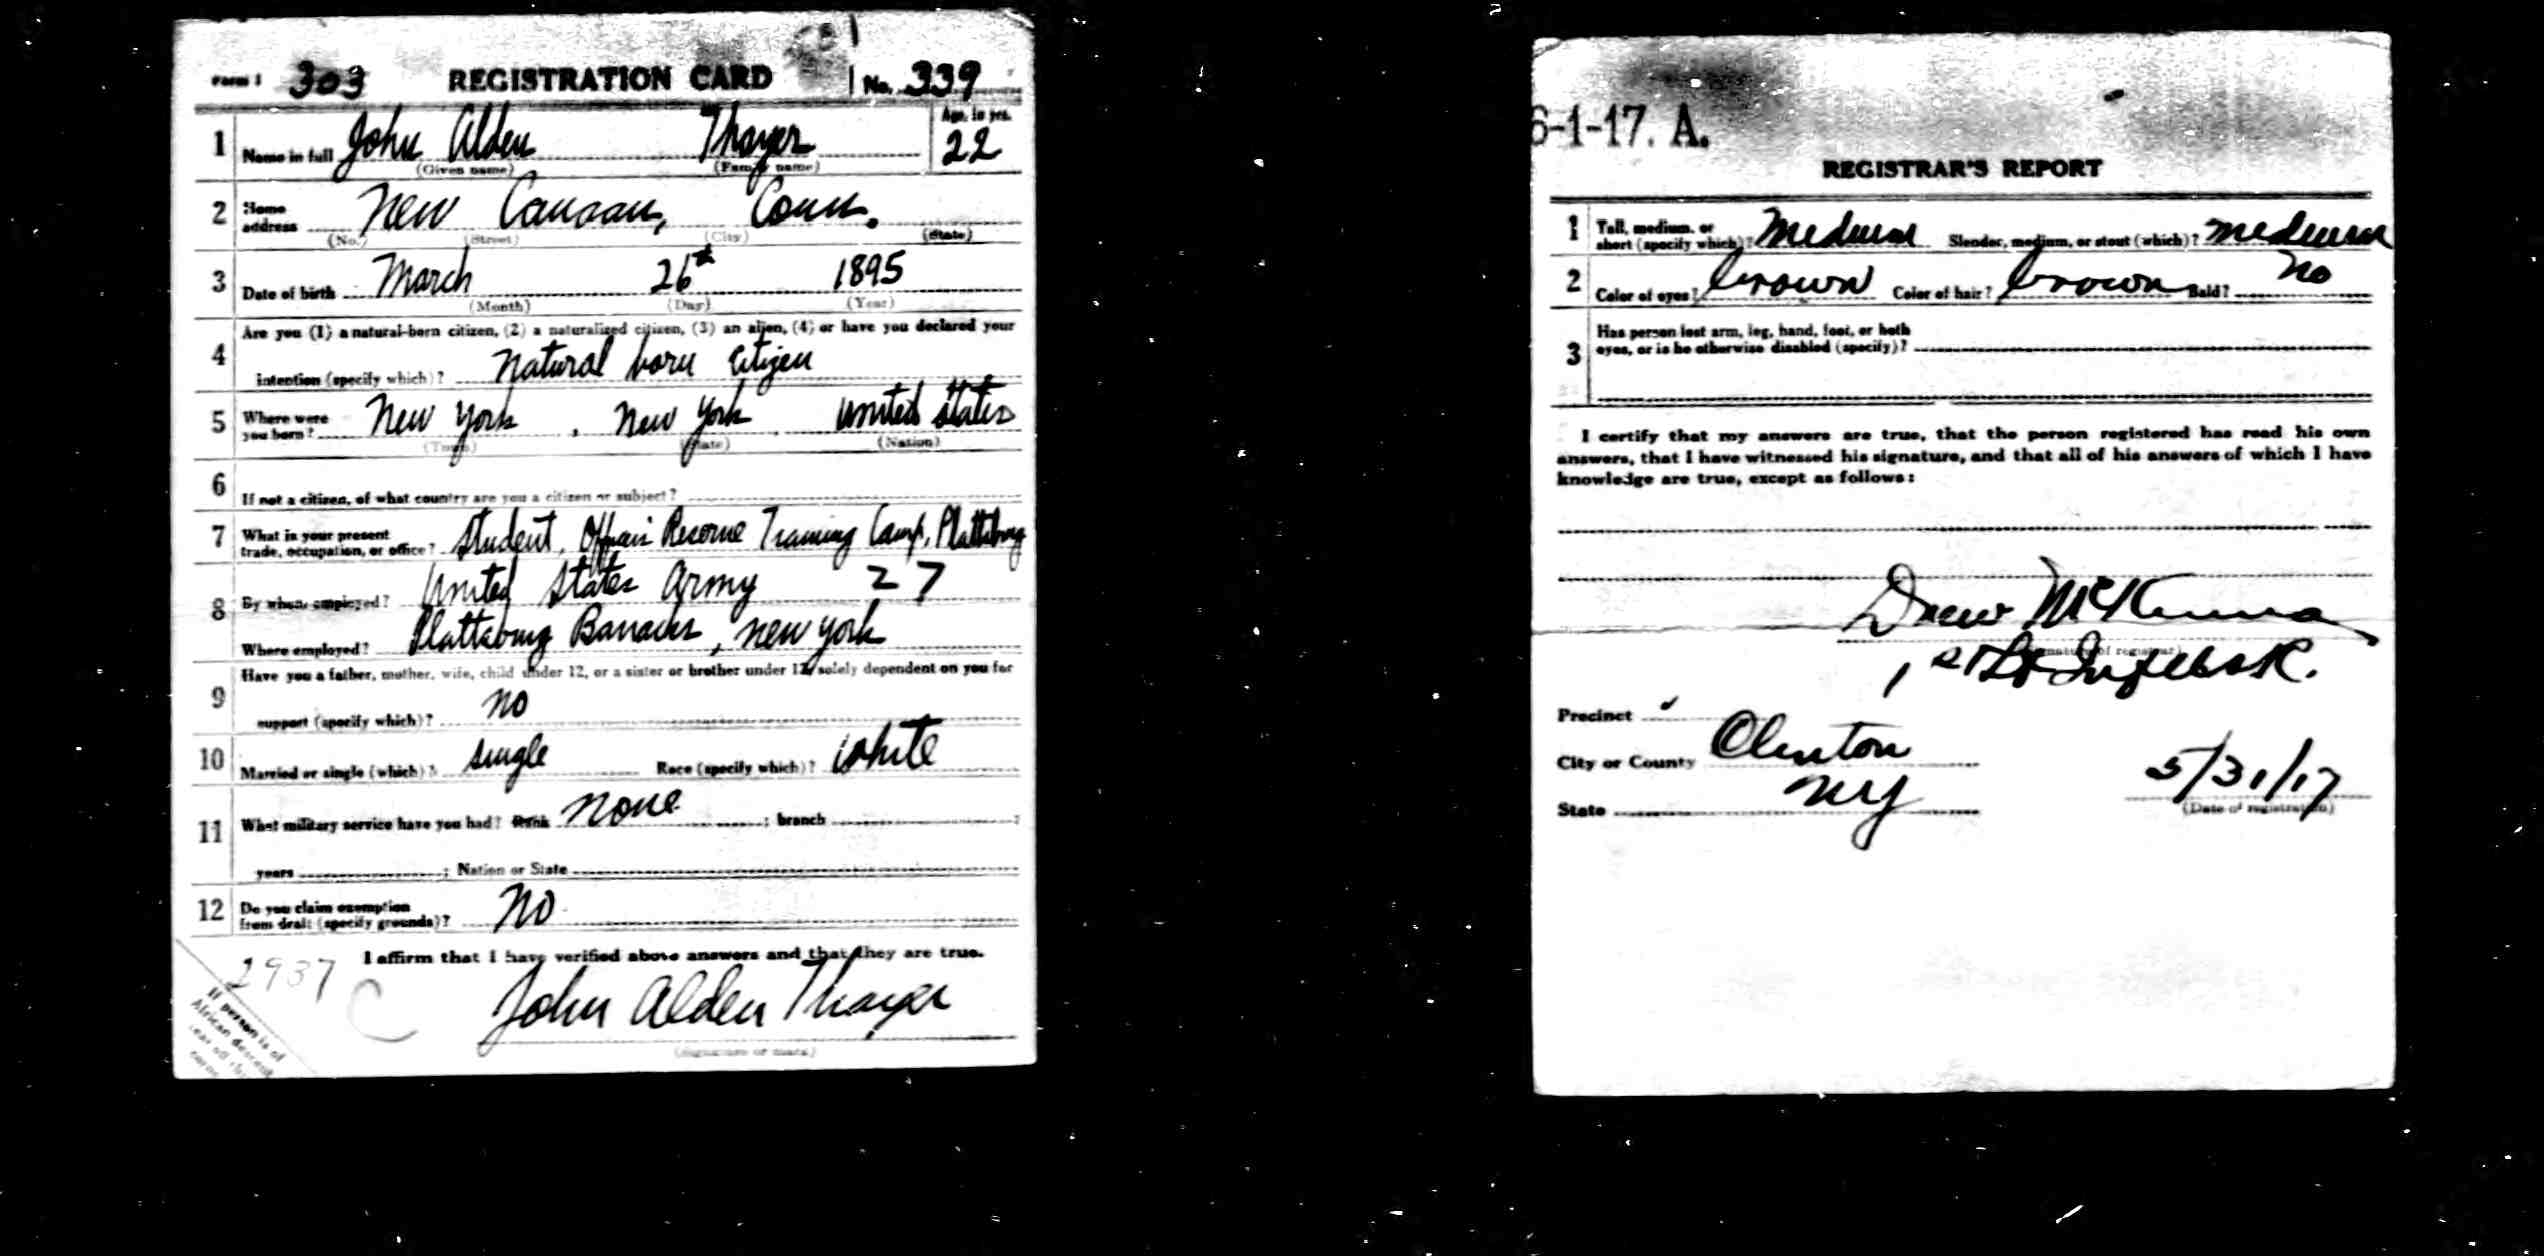 Form 1 303 REGISTRATION CARD No. 339
1 Name in full John Alden Thayer Age, in yrs. 22
(Given name) (Family name)
2 Home address New Canaan, Conn.
(No.) (Street) (City) (State)
3 Date of birth March 26th 1895
(Month) (Day) (Year)
4 Are you (1) a natural-born citizen, (2) a naturalized citizen, (3) an alien, (4) or have you declared your
intention (specify which)? Natural born citizen
5 Where were you born? New York, New York United States
(Town) (State) (Nation)
6 If not a citizen, of what country are you a citizen or subject?
7 What is your present trade, occupation, or office? Student, Officers Reserve Training Camp, Plattsburg
8 By whom employed? United States Army 27
Where employed? Plattsburg Barracks, New York
9 Have you a father, mother, wife, child under 12, or a sister or brother under 12, solely dependent on you for
support (specify which)? No
10 Married or single (which)? Single Race (specify which)? White
11 What military service have you had? Rank None ; branch ;
years ; Nation or State
12 Do you claim exemption from draft (specify grounds)? No
I affirm that I have verified above answers and that they are true.
2937 C
John Alden Thayer
(Signature or mark)
If person is of
African descent
tear off this
corner
6-1-17. A.
REGISTRAR'S REPORT
1 Tall, medium, or short (specify which)? Medium Slender, medium, or stout (which)? Medium
2 Color of eyes? brown Color of hair? brown Bald? No
3 Has person lost arm, leg, hand, foot, or both
eyes, or is he otherwise disabled (specify)?
I certify that my answers are true, that the person registered has read his own
answers, that I have witnessed his signature, and that all of his answers of which I have
knowledge are true, except as follows:
Drew McKenna
(Signature of registrar)
1st Lt Inf
Precinct
City or County Clinton
State NY 5/31/17
(Date of registration)